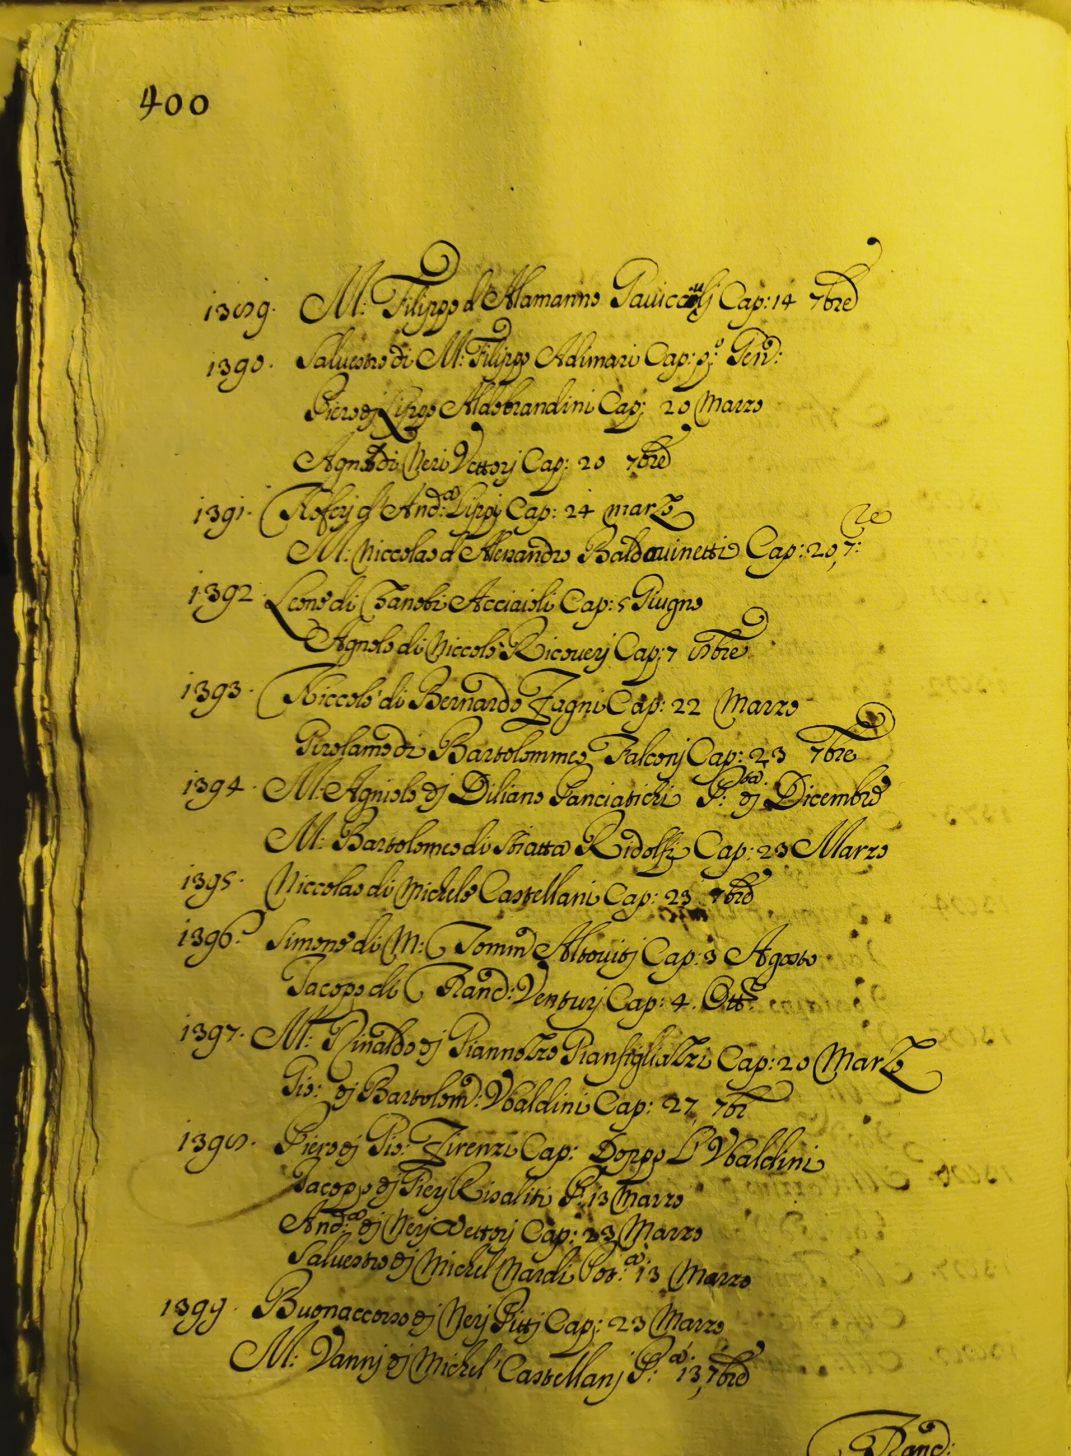 400
1389. M: Filippo d'Alamanno Cap: 14 7bre
1390. Salvestro di M: Filippo Adimari Cap: p.º Gen:
Piero dj Lippo Aldobrandini Cap: 20 Marzo
Agnolo di Neri Vettorj Cap: 20 7bre
1391. And:ª Lippj Cap: 24 marzo
M: Niccolao d'Alessandro Baldovinetti Cap: 20, 7:re
1392. Leone di Zanobi Acciaioli Cap: 5 Giugno
Agnolo di Niccolò Ricoverj Cap: 7 8bre
1393. Niccolò di Bernardo Zagni Cap: 22 Marzo
Girolamo di Bartolommeo Falconj Cap: 23 7bre
1394. M: Agniolo dj Giliano Panciatichi P:tà dj Dicembre
M: Bartolomeo di Sbiatta Ridolfj Cap: 23 Marzo
1395. Niccolao di Michele Castellani Cap: 23 7bre
1396. Simone di M: Tomm Altovitj Cap: 3 Agosto
Jacopo di Rand: Venturj Cap: 4. Ottre
1397. M: Rinaldo dj Giannozzo Gianfigliazzi Cap: 20 Marzo
Gio: dj Bartolom: Ubaldini Cap: 27, 7br
1398. Piero dj Gio: Firenzi Cap: Doppo L'Ubaldini
Jacopo dj Pierj Risaliti P: 13 Marzo
And:ª dj Nerj Vettorj Cap: 23 Marzo
Salvestro dj Michel Nardi Pot:ª 13 Marzo
1399. Buonaccorso dj Nerj Pittj Cap: 23 Marzo
M: Vannj dj Michel Castellanj P:ª 13, 7bre
Rand: